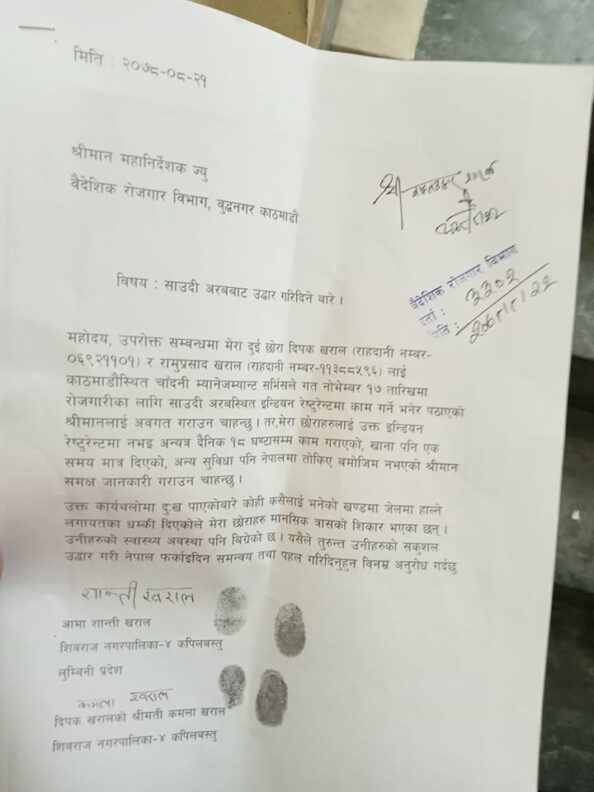 मिति : २०७८-०८-२१
श्रीमान महानिर्देशक ज्यु
वैदेशिक रोजगार विभाग, वुद्धनगर काठमाडौं
श्री
वैदेशिक रोजगार विभाग
दर्ता : ३३०२
मिति :
विषय : साउदी अरबबाट उद्धार गरिदिने बारे ।
महोदय, उपरोक्त सम्बन्धमा मेरा दुई छोरा दिपक खराल (राहदानी नम्वर-
०६९२११०१) र रामुप्रसाद खराल (राहदानी नम्वर-११३८८५९६) लाई
काठमाडौंस्थित चाँदनी म्यानेजम्यान्ट सर्भिसले गत नोभेम्बर १७ तारिखमा
रोजगारीका लागि साउदी अरवस्थित इन्डियन रेष्टुरेन्टमा काम गर्ने भनेर पठाएको
श्रीमानलाई अवगत गराउन चाहन्छु । तर,मेरा छोराहरुलाई उक्त इन्डियन
रेष्टुरेन्टमा नभइ अन्यत्र दैनिक १८ घण्टासम्म काम गराएको, खाना पनि एक
समय मात्र दिएको, अन्य सुविधा पनि नेपालमा तोकिए बमोजिम नभएको श्रीमान
समक्ष जानकारी गराउन चाहन्छु ।
उक्त कार्यथलोमा दु:ख पाएकोबारे कोही कसैलाई भनेको खण्डमा जेलमा हाल्ने
लगायतका धम्की दिएकोले मेरा छोराहरु मानसिक त्रासको शिकार भएका छन् ।
उनीहरुको स्वास्थ्य अवस्था पनि बिग्रेको छ । यसैले तुरुन्त उनीहरुको सकुशल
उद्धार गरी नेपाल फर्काइदिन समन्वय तथा पहल गरिदिनुहुन विनम्र अनुरोध गर्दछु
शान्ती खराल
आमा शान्ती खराल
शिवराज नगरपालिका-४ कपिलबस्तु
लुम्विनी प्रदेश
कमला खराल
दिपक खरालको श्रीमती कमला खराल
शिवराज नगरपालिका-४ कपिलबस्तु